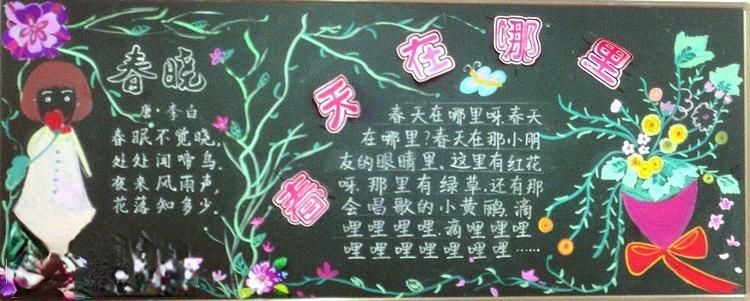 春晓
唐·李白
春眠不觉晓,
处处闻啼鸟.
夜来风雨声,
花落知多少.
春天在哪里
春天在哪里呀春天
在哪里?春天在那小朋
友的眼睛里.这里有红花
呀.那里有绿草.还有那
会唱歌的小黄鹂.滴
哩哩哩哩.滴哩哩哩
哩哩哩哩哩哩哩……